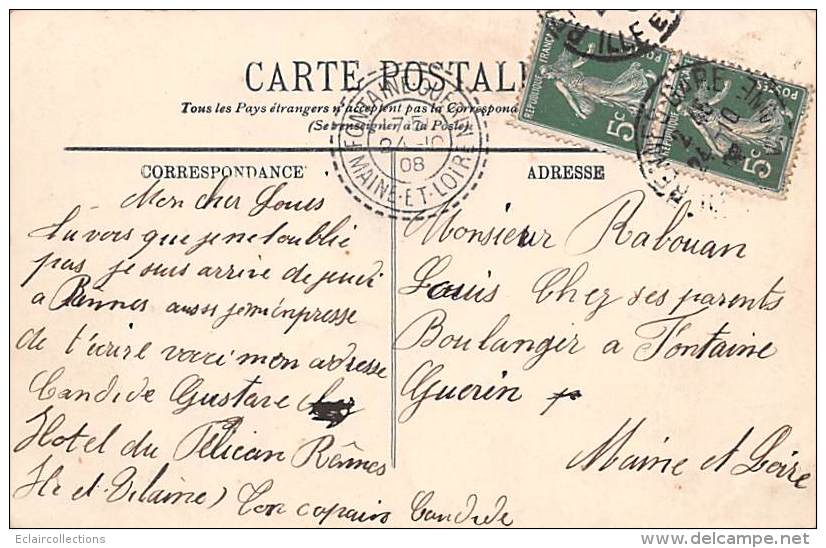 CARTE POSTALE
Tous les Pays étrangers n'acceptent pas la Correspondance
(Se renseigner à la Poste)
CORRESPONDANCE
ADRESSE
FONTAINE-GUERIN
24-10
08
MAINE-ET-LOIRE
ILLE E
REPUBLIQUE FRANC
POSTES
5c
5c
Mon cher Louis
tu vois que je ne t'oublie
pas je suis arrive de jeudi
a Rennes aussi je m'enpresse
de t'ecrire voici mon adresse
Candide Gustave chez
Hotel du Pélican Rênnes
Ile et Vilaine) Ton copain Candide
Monsieur Rabouan
Louis Chez ses parents
Boulanger a Fontaine
Guerin
Maine et Loire
Eclaircollections
delcampe.net